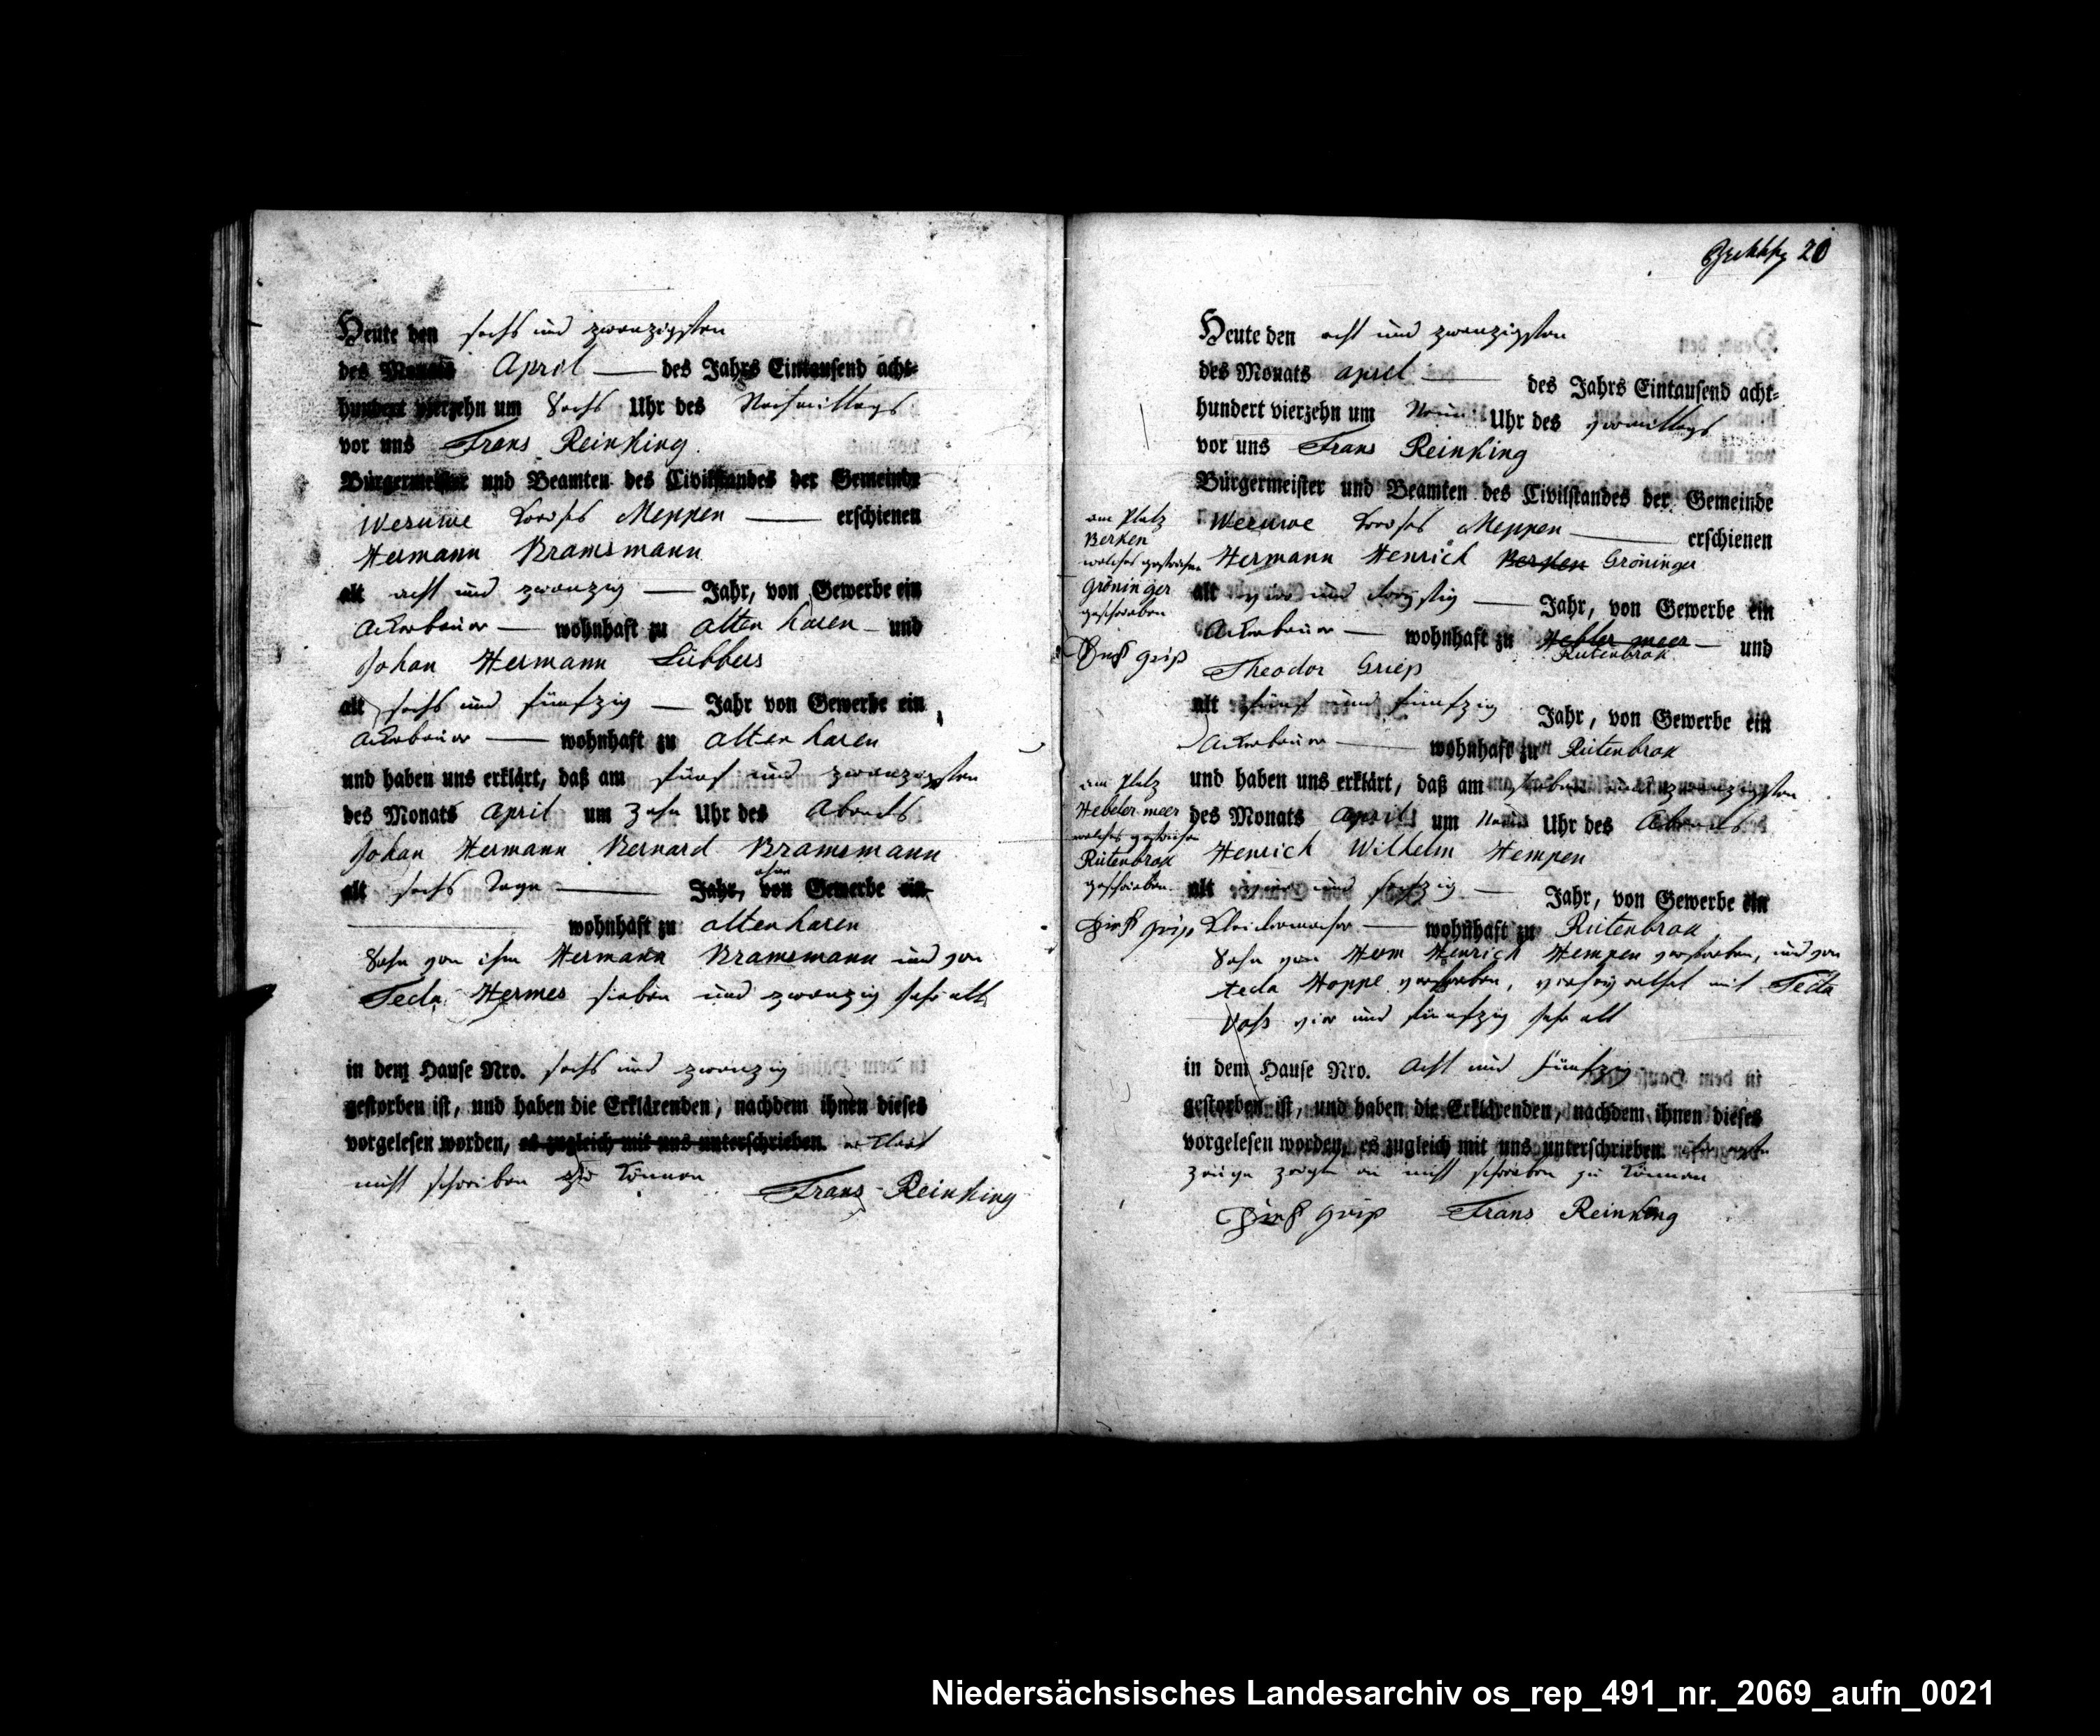 Heute den sechs und zwanzigsten
des Monats April des Jahrs Eintausend acht-
hundert vierzehn um Sechs Uhr des Nachmittags
vor uns Frans Reinking
Bürgermeister und Beamten des Civilstandes der Gemeinde
Wesuwe Kreises Meppen erschienen
Hermann Bramsmann
alt acht und zwanzig Jahr, von Gewerbe ein
Ackerbauer wohnhaft zu alten haren und
Johan Hermann Lübbers
alt sechs und fünfzig Jahr von Gewerbe ein
Ackerbauer wohnhaft zu alten haren
und haben uns erklärt, daß am fünf und zwanzigsten
des Monats April um zehn Uhr des Abends
Johan Hermann Bernard Bramsmann
alt sechs Tage Jahr, ohne von Gewerbe ein
wohnhaft zu altenharen
Sohn von ihm Hermann Bramsmann und von
Teda Hermes sieben und zwanzig Jahr alt
in dem Hause Nro. sechs und zwanzig
gestorben ist, und haben die Erklärenden, nachdem ihnen dieses
vorgelesen worden, es zugleich mit uns unterschrieben. erklärt
nicht schreiben zu können Frans Reinking
20
Heute den acht und zwanzigsten
des Monats april des Jahrs Eintausend acht-
hundert vierzehn um Neun Uhr des vormittags
vor uns Frans Reinking
Bürgermeister und Beamten des Civilstandes der Gemeinde
Wesuwe Kreises Meppen erschienen
Hermann Henrich Berken Gröninger
alt vier und dreyssig Jahr, von Gewerbe ein
Ackerbauer wohnhaft zu Hebler meer Rütenbrok und
Theodor Griep
alt fünf und fünfzig Jahr, von Gewerbe ein
Ackerbauer wohnhaft zu Rütenbrok
und haben uns erklärt, daß am sieben und zwanzigsten
des Monats April um Neun Uhr des Abends
Henrich Wilhelm Hempen
alt vier und sechzig Jahr, von Gewerbe ein
Kleidermacher wohnhaft zu Rütenbrok
Sohn von Herm Henrich Hempen verstorben, und von
teda Hoppe verstorben, verheyrathet mit Teda
Voss vier und fünfzig Jahr alt
in dem Hause Nro. Acht und fünfzig
gestorben ist, und haben die Erklärenden, nachdem ihnen dieses
vorgelesen worden, es zugleich mit uns unterschrieben.
zeuge zeigte an nicht schreiben zu können
Dirk Grip Frans Reinking
am Platz
Berken
welches gestrichen
Gröninger
geschrieben
Dirk Grip
am Platz
Hebeler meer
welches gestrichen
Rütenbrok
geschrieben
Dirk Grip
Niedersächsisches Landesarchiv os_rep_491_nr._2069_aufn_0021